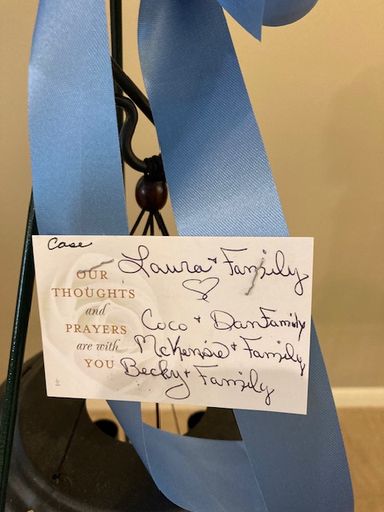 Case
Laura + Family
OUR
THOUGHTS
and
PRAYERS
are with
YOU
Coco + Dan Family
McKensie + Family
Becky + Family